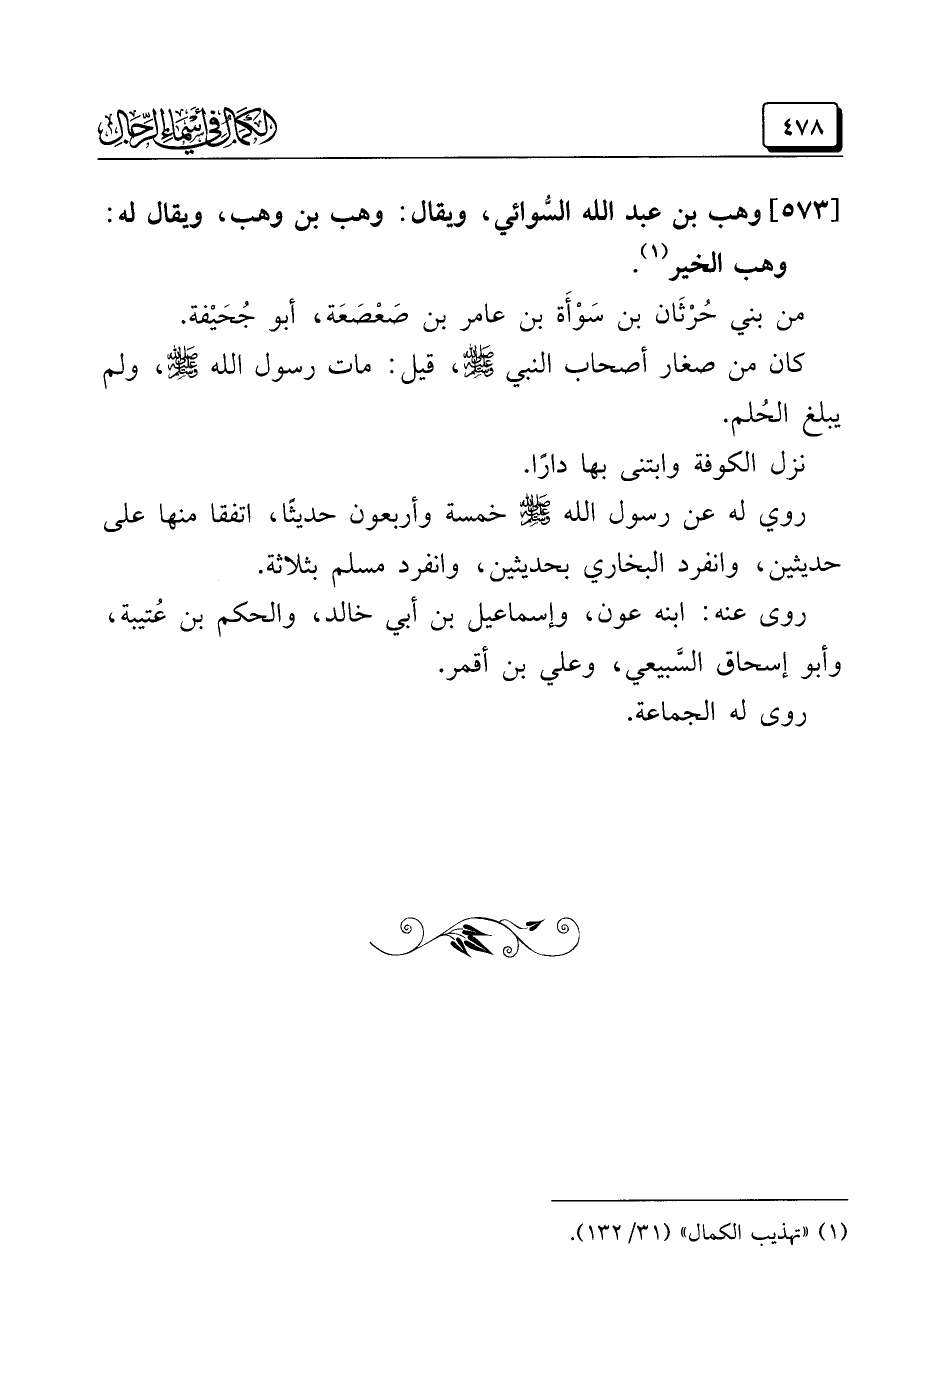 ٤٧٨
الكمال في أسماء الرجال
[٥٧٣] وهب بن عبد الله السُّوائي، ويقال: وهب بن وهب، ويقال له:
وهب الخير(١).
من بني حُرْثَان بن سَوْأَة بن عامر بن صَعْصَعَة، أبو جُحَيْفة.
كان من صغار أصحاب النبي ﷺ، قيل: مات رسول الله ﷺ، ولم
يبلغ الحُلم.
نزل الكوفة وابتنى بها دارًا.
روي له عن رسول الله ﷺ خمسة وأربعون حديثًا، اتفقا منها على
حديثين، وانفرد البخاري بحديثين، وانفرد مسلم بثلاثة.
روى عنه: ابنه عون، وإسماعيل بن أبي خالد، والحكم بن عُتيبة،
وأبو إسحاق السَّبيعي، وعلي بن أقمر.
روى له الجماعة.
(١) «تهذيب الكمال» (٣١/ ١٣٢).